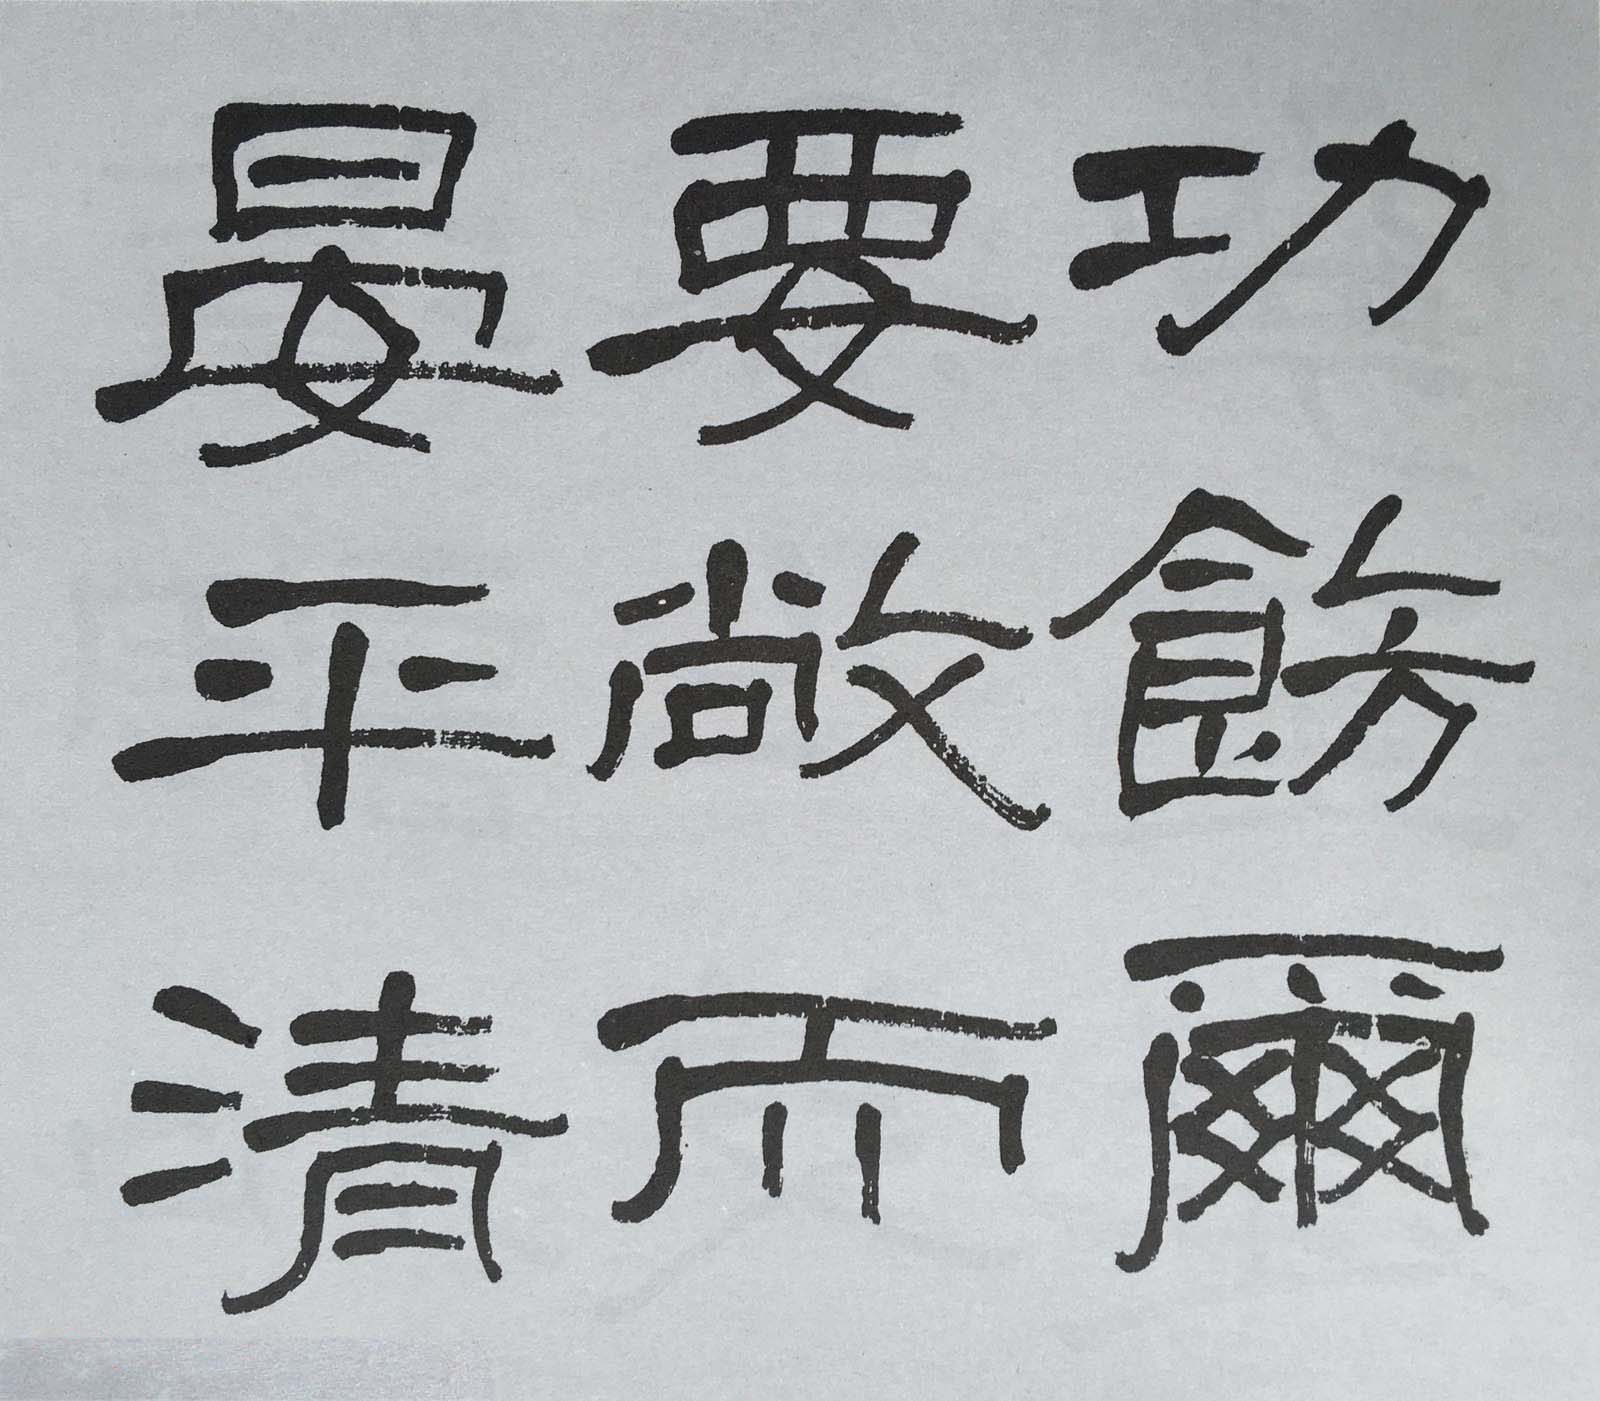 功飭爾
要敞而
晏平清